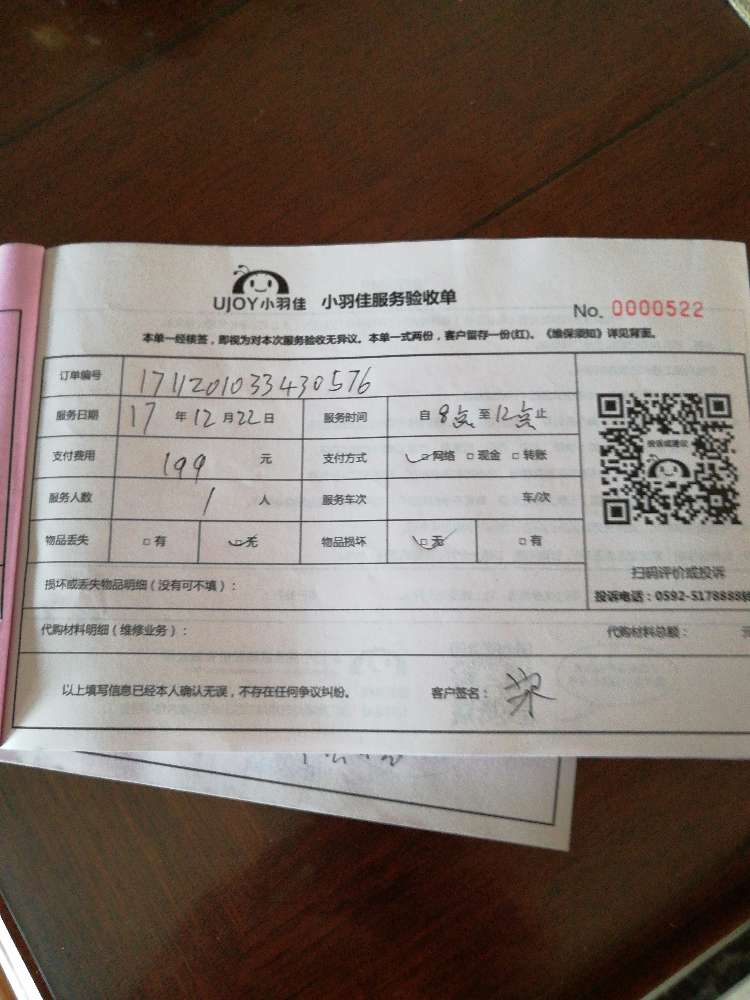 UJOY小羽佳 小羽佳服务验收单
No. 0000522
本单一经核签，即视为对本次服务验收无异议。本单一式两份，客户留存一份(红)。《维保须知》详见背面。
订单编号 1711201033430576
服务日期 17 年 12 月 22 日 服务时间 自 8点 至 12点 止
支付费用 199 元 支付方式 □网络 □现金 □转账
服务人数 1 人 服务车次 车/次
物品丢失 □有 □无 物品损坏 □无 □有
投诉或建议
扫码评价或投诉
损坏或丢失物品明细（没有可不填）：
投诉电话：0592-5178888转
代购材料明细（维修业务）： 代购材料总额：
以上填写信息已经本人确认无误，不存在任何争议纠纷。 客户签名：